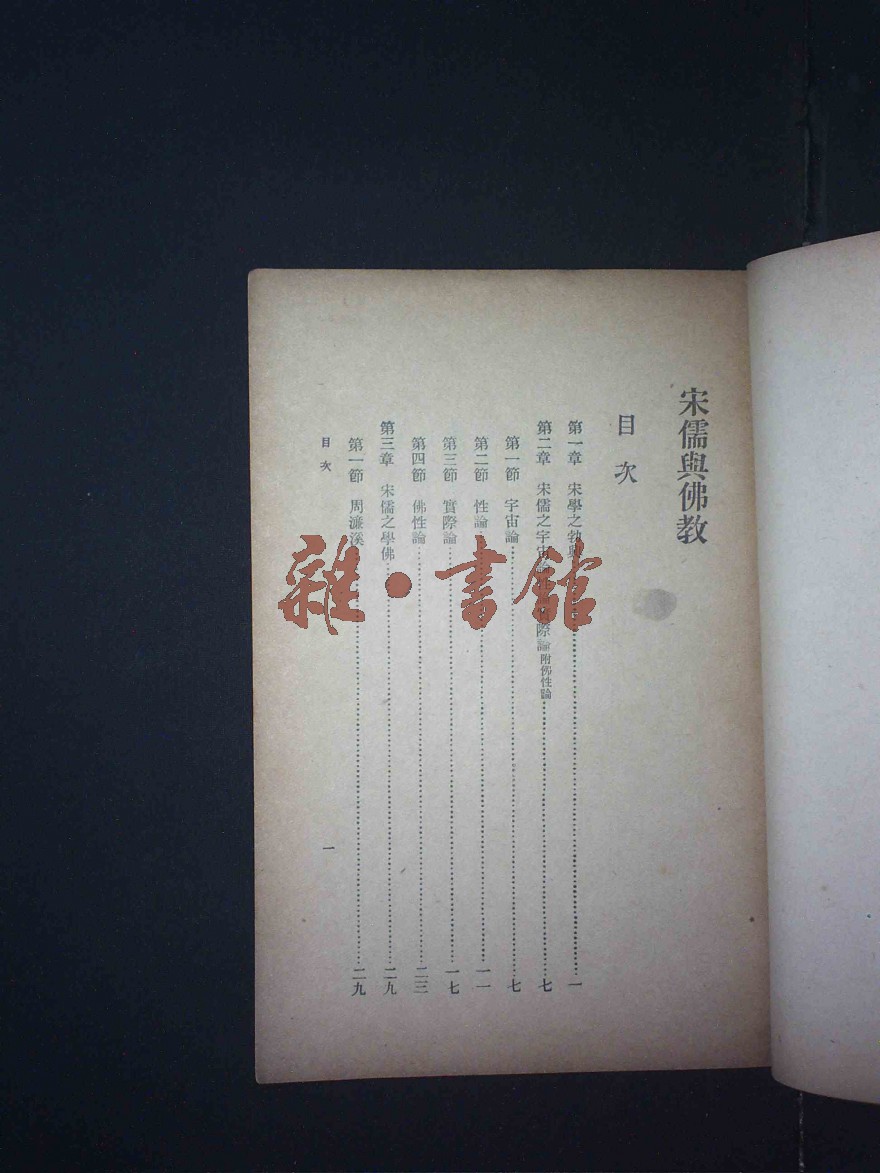 宋儒與佛教
目次
第一章 宋學之勃……一
第二章 宋儒之宇宙 際論附佛性論……七
第一節 宇宙論……七
第二節 性論……一一
第三節 實際論……一七
第四節 佛性論……二三
第三章 宋儒之學佛……二九
第一節 周濂溪……二九
目次
一
雜·書館